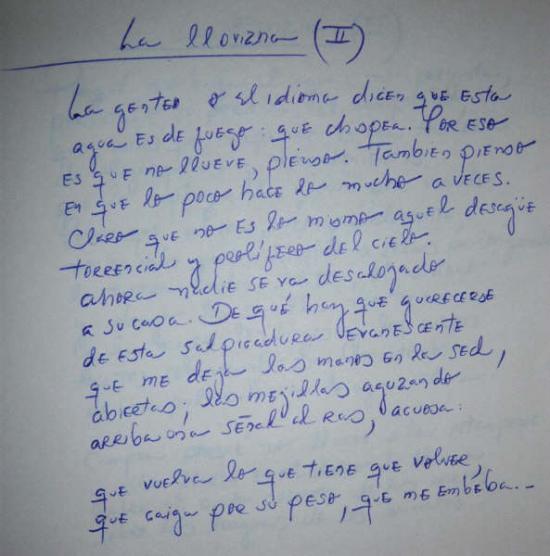 La llovizna (II)
La gente o el idioma dicen que esta
agua es de fuego: que chopea. Por eso
es que no llueve, pienso. Tambien pienso
en que lo poco hace lo mucho a veces.
Claro que no es lo mismo aquel desagüe
torrencial y prolífero del cielo.
ahora nadie se va desalojado
a su casa. De qué hay que guarecerse
de esta salpicadura evanescente
que me deja las manos en la sed,
abiertas; las mejillas aguzando
arriba una señal al ras, acuosa:
que vuelva lo que tiene que volver,
que caiga por su peso, que me embéba...